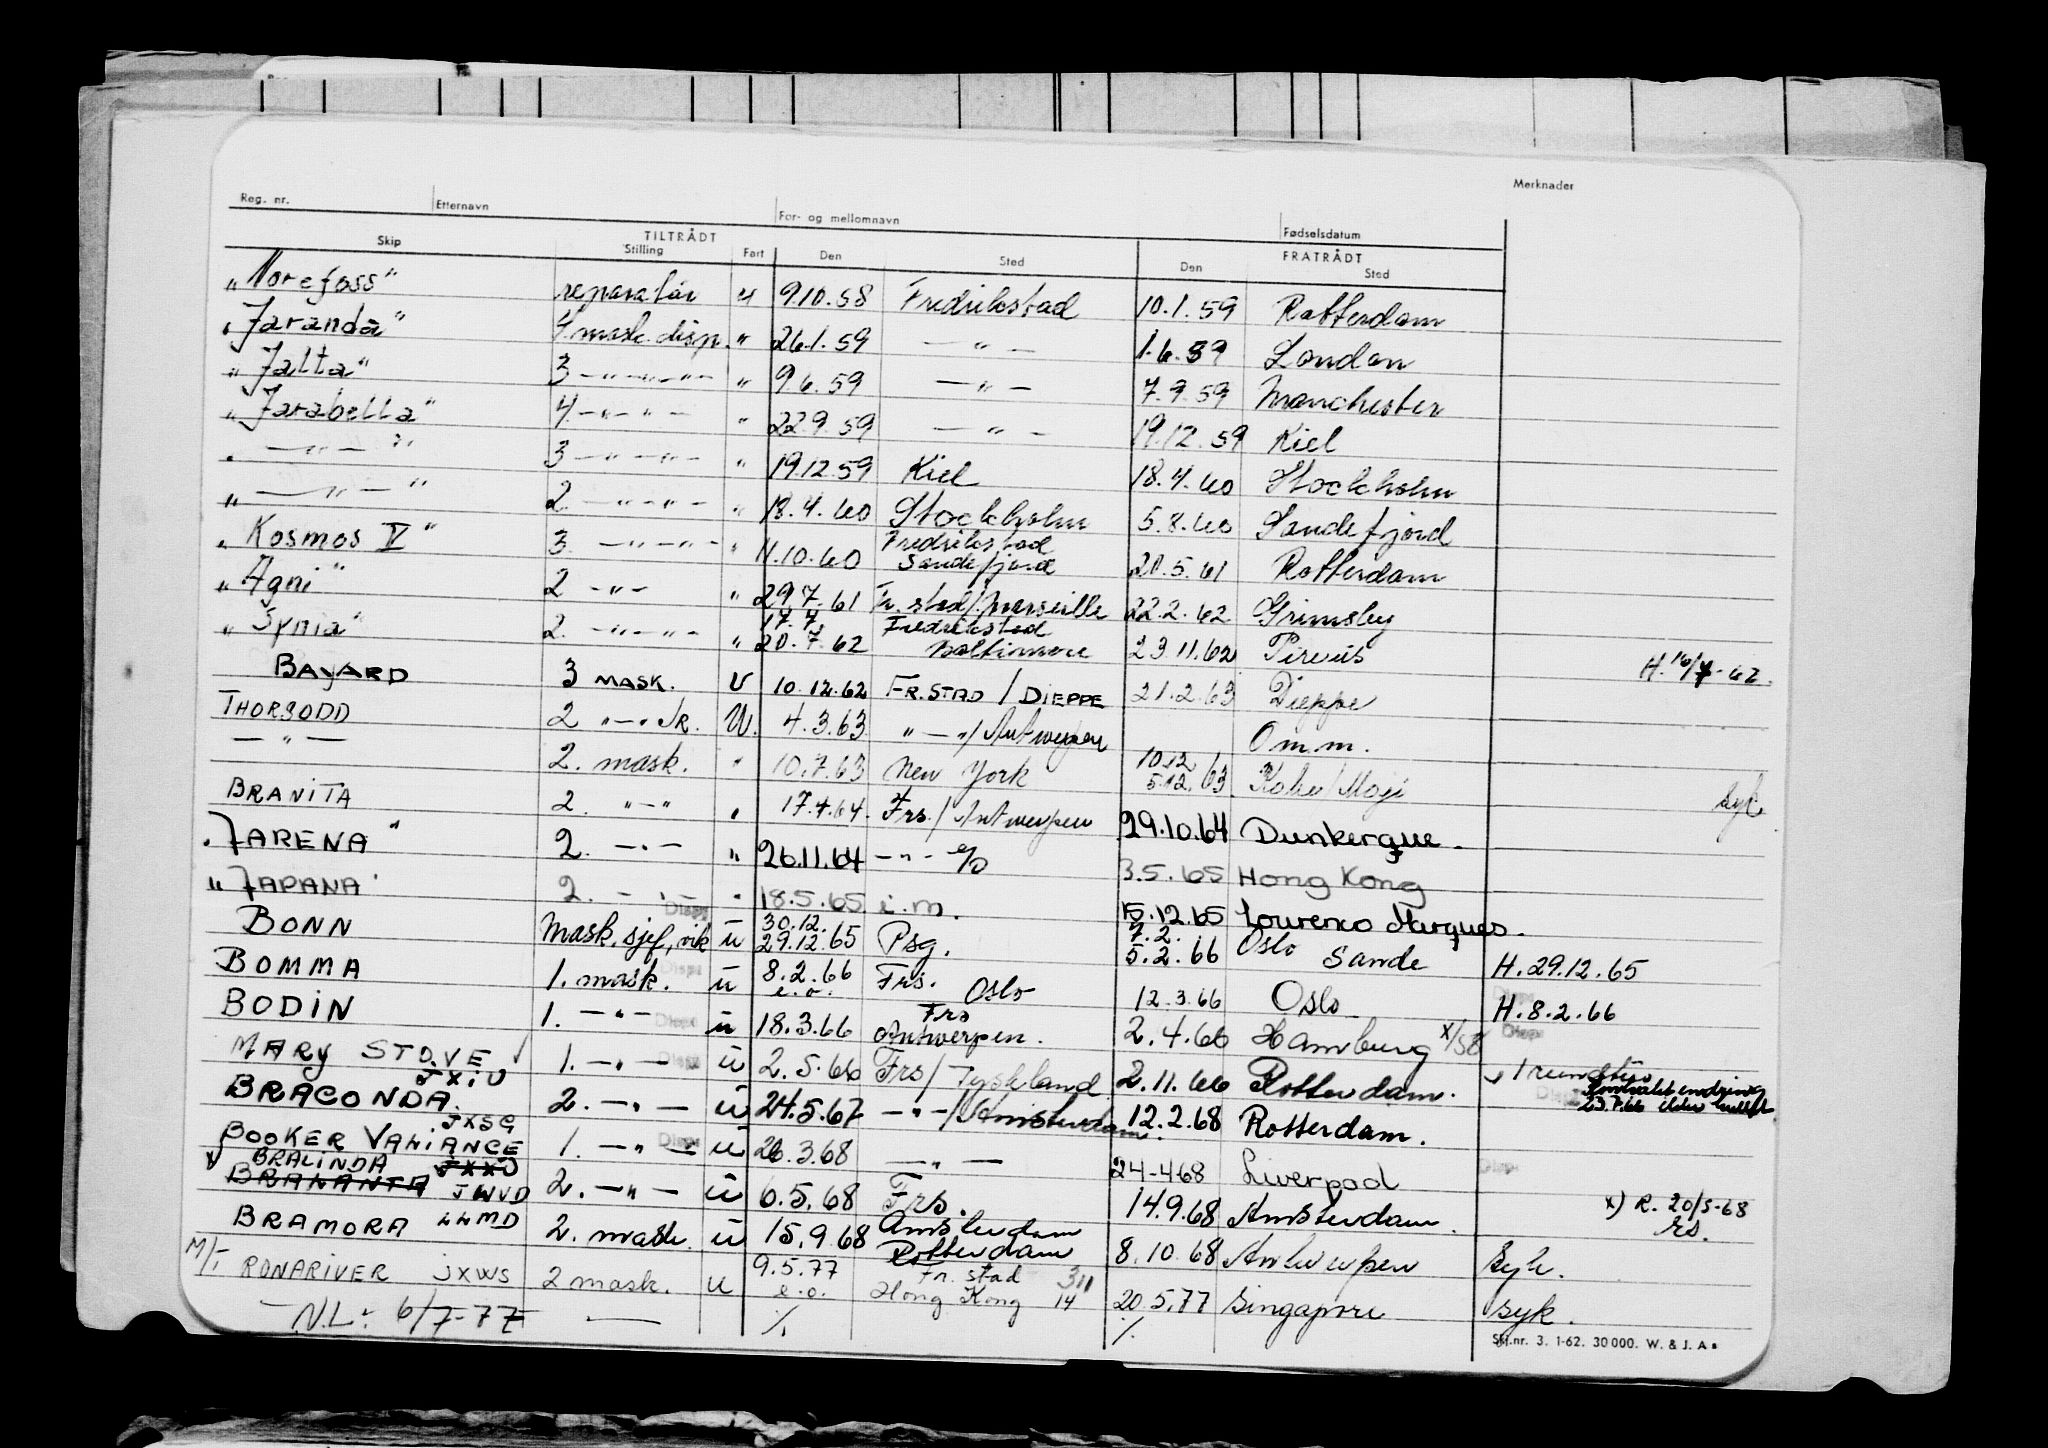 Reg. nr. Etternavn For- og mellomnavn Fødselsdatum Merknader
TILTRÅDT FRATRÅDT
Skip Stilling Fart Den Sted Den Sted
"Norefoss" reparatør u 9.10.58 Fredrikstad 10.1.59 Rotterdam
"Jaranda" 4. mask. disp. " 26.1.59 — " — 1.6.59 London
"Jalta" 3 — " — " — " — " 9.6.59 — " — 7.9.59 Manchester
"Jarabella" 4 — " — " — " 22.9.59 — " — 19.12.59 Kiel
" — " — " 3 — " — " — " 19.12.59 Kiel 18.4.60 Stockholm
" — " — " 2. — " — " — " 18.4.60 Stockholm 5.8.60 Sandefjord
"Kosmos V" 3. — " — " — " 11.10.60 Fredrikstad Sandefjord 20.5.61 Rotterdam
"Agni" 2 — " — " 29.7.61 Fr.stad/Marseille 22.2.62 Grimsby
"Synia" 2. — " — " — " 17.7. 20.7.62 Fredrikstad Baltimore 23.11.62 Pireus
BAYARD 3 MASK. U 10.12.62 FR.STAD / DIEPPE 21.2.63 Dieppe H. 10/7-62.
THORSODD 2 " — " Jr. U. 4.3.63 " — " / Antwerpen O m.m.
— " — 2. mask. " 10.7.63 New York 10.12 5.12.63 Kobe/Moji syk
BRANITA 2. " — " " 17.4.64. Frs./Antwerpen 29.10.64 Dunkerque.
"JARENA" 2. — " — " 26.11.64 — " — e/o 3.5.65 Hong Kong
"JAPANA" 2. — " — " 18.5.65 i.m. 15.12.65 Lourenco Marques.
BONN Mask.sjef, vik Disps u 30.12. 29.12.65 Psg. 7.2. 5.2.66 Oslo Sande H. 29.12.65
BOMMA 1. mask. Disps u 8.2.66 e.o. Frs. Oslo 12.3.66 Oslo H. 8.2.66
BODIN 1. — " — Disps u 18.3.66 Frs Antwerpen. 2.4.66 Hamburg x/ Disps
MARY STOVE JXIU 1. — " — Disps u 2.5.66 Frs/Tyskland 2.11.66 Rotterdam. 1 rundtur 23.7.66
BRACONDA. JXSG 2. — " — u 24.5.67 — " — /Amsterdam. 12.2.68 Rotterdam.
BOOKER VALIANCE JXXU 1. — " — Disps u 26.3.68 — " — 24-4 68 Liverpool Disps
x BRALINDA BRAKANTA JWVD 2. — " — u 6.5.68 Frs. 14.9.68 Amsterdam. x) R. 20/5-68
BRAMORA LLMD 2. mask. u 15.9.68 Amsterdam Rotterdam 8.10.68 Antwerpen syk.
M/T RONARIVER JXWS 2 mask. u 9.5.77 e.o. Fr.stad Hong Kong 311 14 20.5.77 Singapore syk.
— N.L: 6/7-77 — % %
Skj.nr. 3. 1-62. 30 000. W. & J. A s